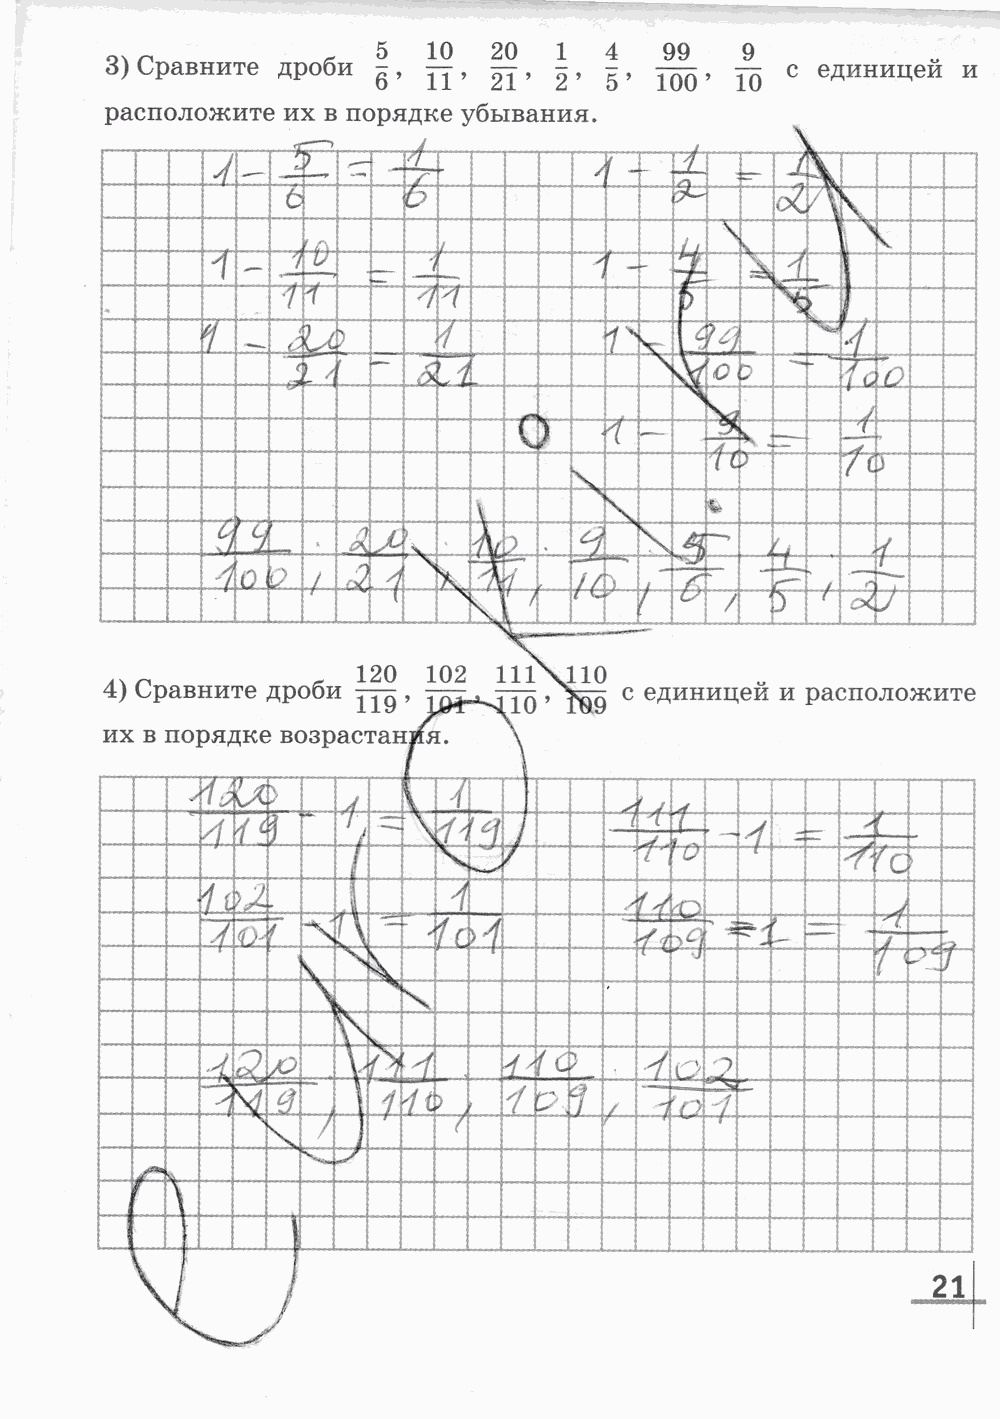 3) Сравните дроби 5/6, 10/11, 20/21, 1/2, 4/5, 99/100, 9/10 с единицей и
расположите их в порядке убывания.
1 - 5/6 = 1/6
1 - 1/2 = 1/2
1 - 10/11 = 1/11
1 - 4/5 = 1/5
1 - 20/21 = 1/21
1 - 99/100 = 1/100
1 - 9/10 = 1/10
99/100, 20/21, 10/11, 9/10, 5/6, 4/5, 1/2
4) Сравните дроби 120/119, 102/101, 111/110, 110/109 с единицей и расположите
их в порядке возрастания.
120/119 - 1 = 1/119
111/110 - 1 = 1/110
102/101 - 1 = 1/101
110/109 - 1 = 1/109
120/119, 111/110, 110/109, 102/101
21